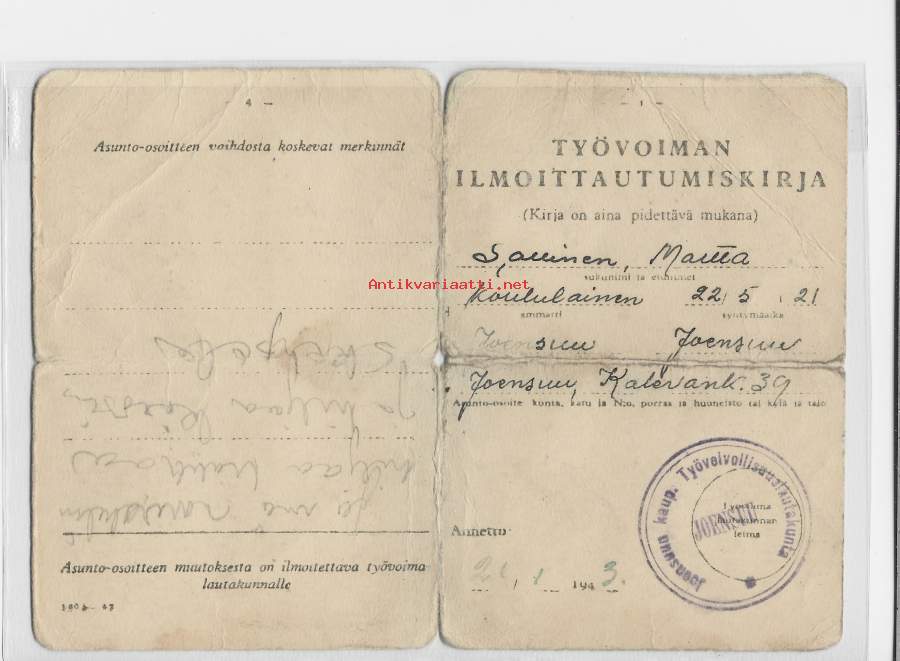 - 4 -
Asunto-osoitteen vaihdosta koskevat merkinnät
Asunto-osoitteen muutoksesta on ilmoitettava työvoima-
lautakunnalle
- 1 -
TYÖVOIMAN
ILMOITTAUTUMISKIRJA
(Kirja on aina pidettävä mukana)
Martta
sukunimi ja etunimet
Koululainen 22/5 21
ammatti syntymäaika
Joensuu Joensuu
Joensuu, Kalevank. 39
Asunto-osoite kunta, katu ja N:o, porras ja huoneisto tai kylä ja talo
Annettu
1 1943.
Joensuun kaup. Työvelvollisuuslautakunta
JOENSUU
Työvoima
lautakunnan
leima
Antikvariaatti.net